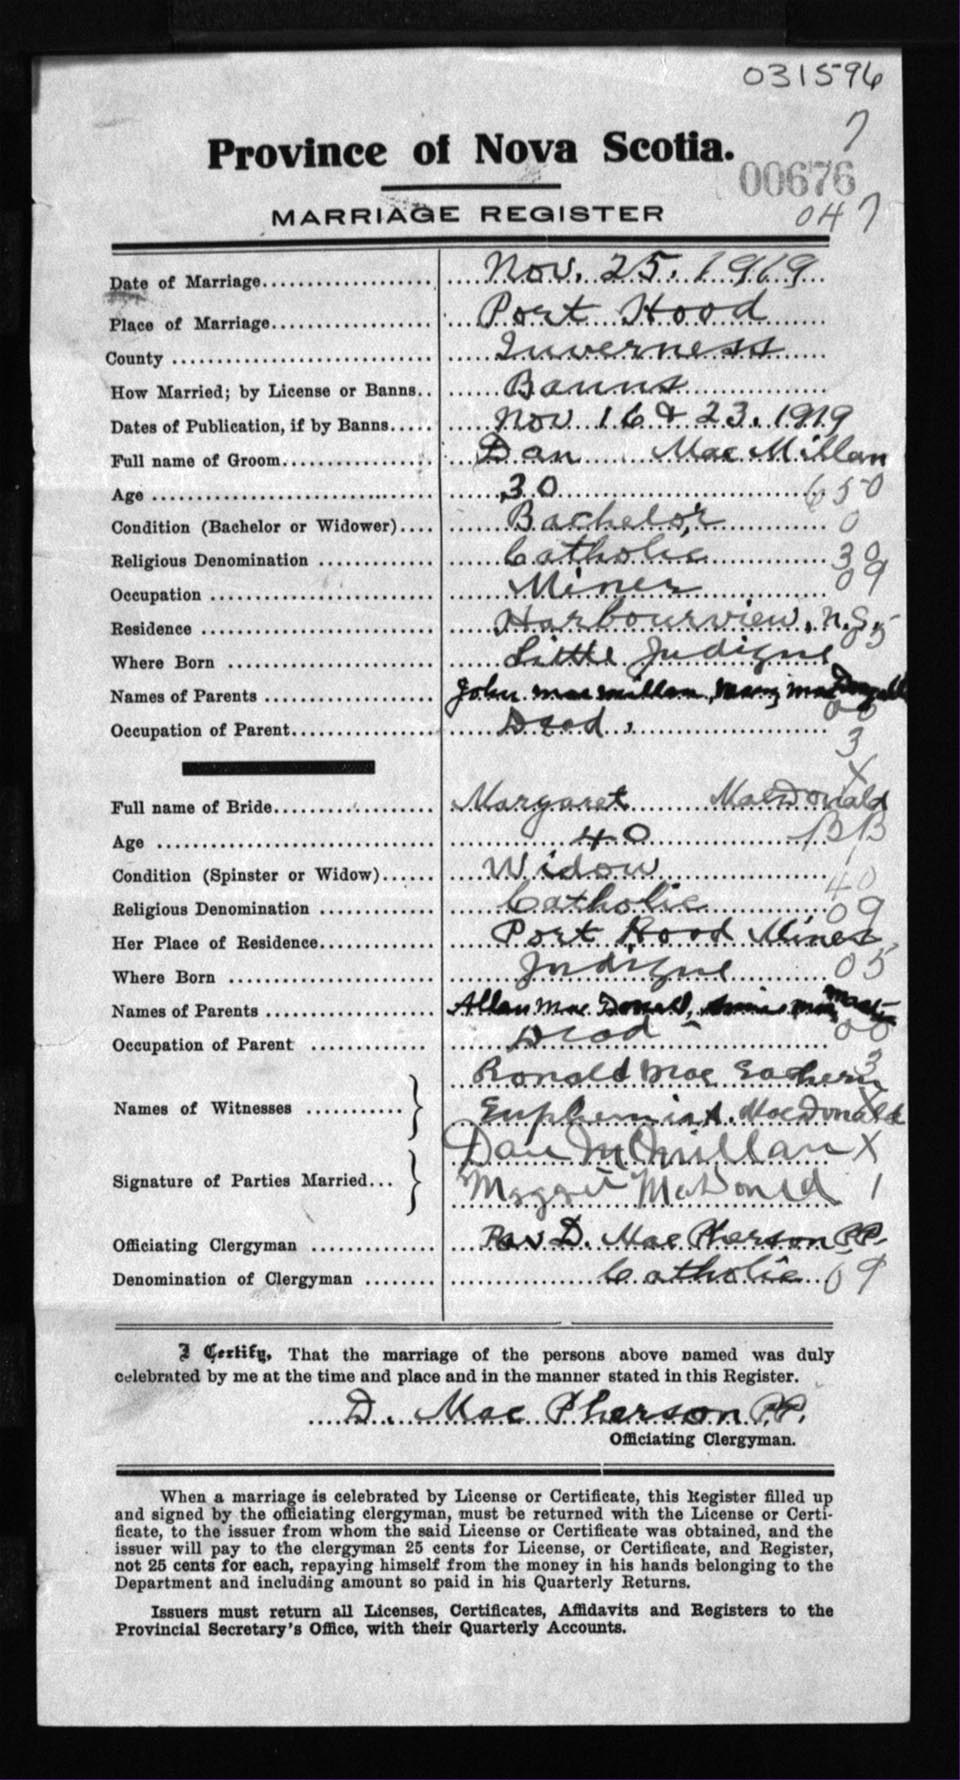 031596
7
Province of Nova Scotia.
00676
047
MARRIAGE REGISTER
Date of Marriage Nov. 25. 1919
Place of Marriage Port Hood
County Inverness
How Married; by License or Banns Banns
Dates of Publication, if by Banns Nov 16 & 23. 1919
Full name of Groom Dan MacMillan
Age 30 650
Condition (Bachelor or Widower) Bachelor 0
Religious Denomination Catholic 30
Occupation Miner 09
Residence Harbourview, N.S. 05
Where Born Little Judique
Names of Parents John MacMillan, Mary MacDougall
Occupation of Parent Dead. 00
3
X
Full name of Bride Margaret MacDonald
Age 40 BB
Condition (Spinster or Widow) Widow 1
Religious Denomination Catholic 40
Her Place of Residence Port Hood Mines 09
Where Born Judique 05
Names of Parents Allan MacDonald, Annie
Occupation of Parent Dead - 00
3
Names of Witnesses Ronald MacEachern
Euphemia MacDonald X
Signature of Parties Married Dan McMillan X
Maggie McDonld 1
Officiating Clergyman Rev D. MacPherson P.P.
Denomination of Clergyman Catholic 09
I Certify, That the marriage of the persons above named was duly
celebrated by me at the time and place and in the manner stated in this Register.
D. MacPherson P.P.
Officiating Clergyman.
When a marriage is celebrated by License or Certificate, this Register filled up
and signed by the officiating clergyman, must be returned with the License or Certi-
ficate, to the issuer from whom the said License or Certificate was obtained, and the
issuer will pay to the clergyman 25 cents for License, or Certificate, and Register,
not 25 cents for each, repaying himself from the money in his hands belonging to the
Department and including amount so paid in his Quarterly Returns.
Issuers must return all Licenses, Certificates, Affidavits and Registers to the
Provincial Secretary's Office, with their Quarterly Accounts.